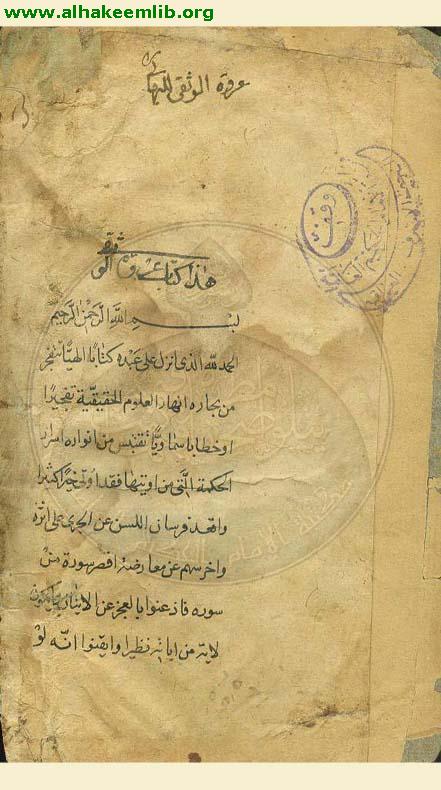 www.alhakeemlib.org
عروة الوثقى للبهائي
وقف
هذا كتاب عروة الوثقى
بسم الله الرحمن الرحيم
الحمد لله الذى انزل على عبده كتابا الهيا تنفجر
من بحاره انهار العلوم الحقيقية تفجيرا
او خطابا سماويا تقتبس من انواره اسرار
الحكمة التى من اوتيها فقد اوتى خيرا كثيرا
فرسان اللسن عن الجرى على اثره
واخرسهم عن معارضة اقصر سورة من
سوره فاذعنوا بالعجز عن الاتيان
لاية من اياته نظيرا وايقنوا انه لو